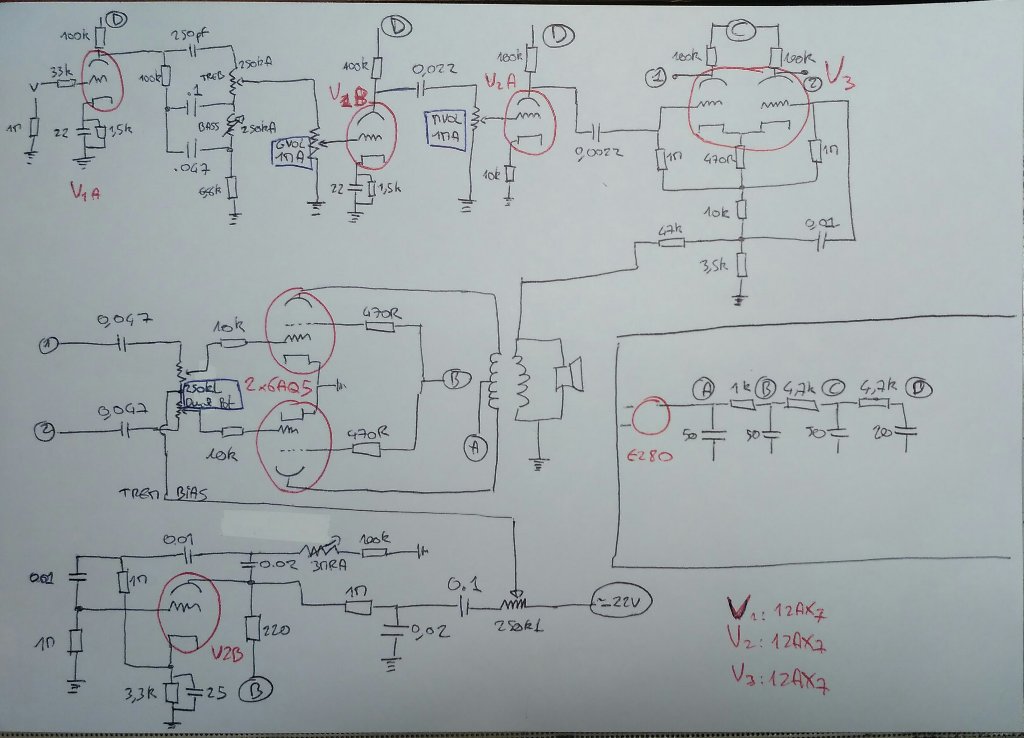 D
250pf
100k
D
D
C
100k
100k
33k
250kA
TREB
100k
100k
0,022
1
2
V3
V2A
V2B
.1
BASS
250kA
GVOL
1MA
MVOL
1MA
22
1,5k
.047
6,8k
22
1,5k
10k
0,0022
1M
470R
1M
1M
V1A
10k
0,01
47k
3,5k
0,047
1
10k
470R
250kL
Dual Pot
2x6AQ5
B
0,047
2
10k
470R
A
TREM BIAS
A
1k
B
4,7k
C
4,7k
D
50
50
50
20
EZ80
0.01
0.01
1M
0.02
3MRA
100k
1M
0.1
≃-22V
250kL
0,02
1M
V2B
220
3,3k
25
B
V1: 12AX7
V2: 12AX7
V3: 12AX7